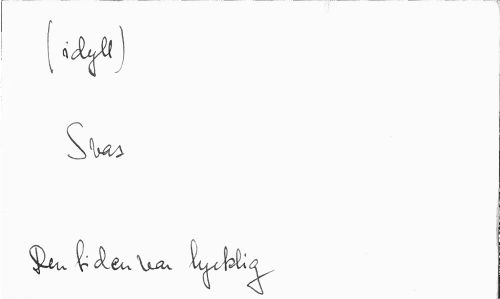 (idyll)
Svas
Den tiden var lycklig